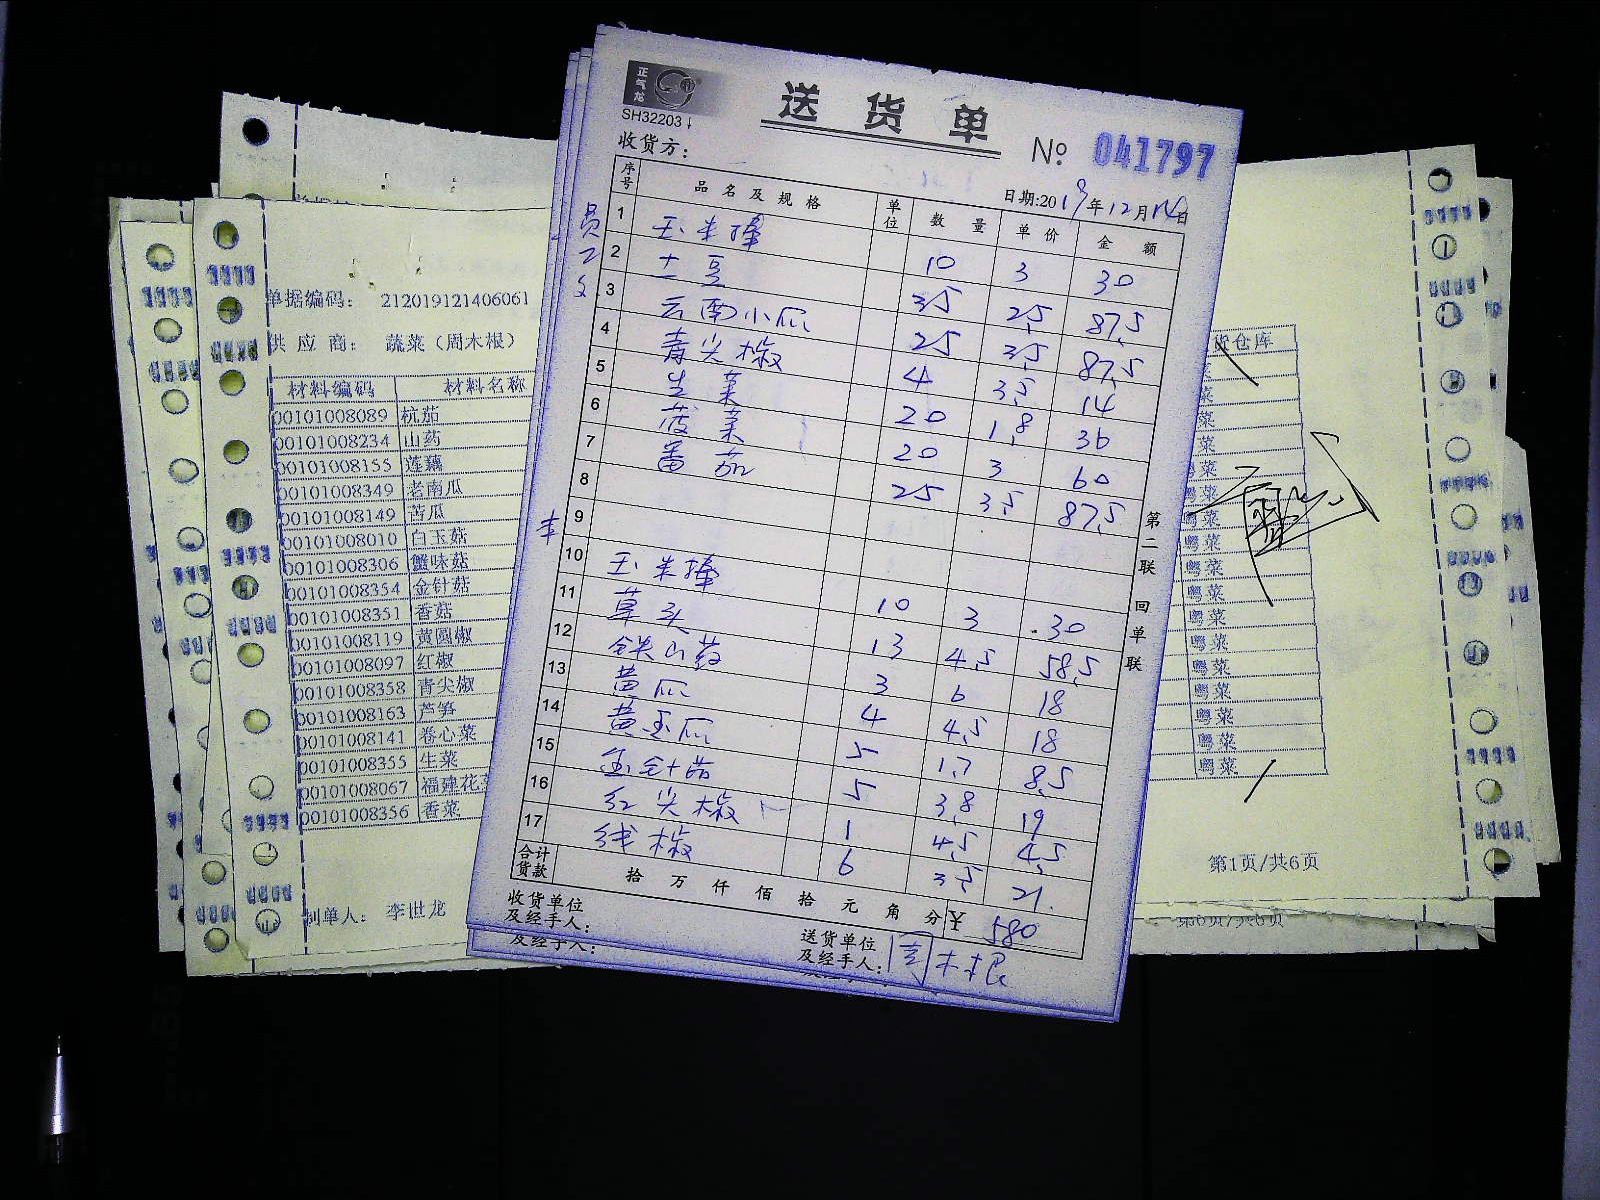 正气龙
SH32203
送货单
收货方：
No 041797
日期:2019年12月14日
序号 品名及规格 单位 数量 单价 金额
员工
1 玉米棒 10 3 30
2 土豆 35 2.5 87.5
3 云南小瓜 25 3.5 87.5
4 青尖椒 4 3.5 14
5 生菜 20 1.8 36
6 菠菜 20 3 60
7 番茄 25 3.5 87.5
8
9
10 玉米棒 10 3 30
11 草头 13 4.5 58.5
12 铁山药 3 6 18
13 黄瓜 4 4.5 18
14 黄玉瓜 5 1.7 8.5
15 金针菇 5 3.8 19
16 红尖椒 1 4.5 4.5
17 线椒 6 3.5 21
合计货款 拾万仟佰拾元角分 ¥ 580
收货单位及经手人：
送货单位及经手人：周木根
第二联 回单联
及经手人：
单据编码： 212019121406061
供应商： 蔬菜（周木根）
材料编码 材料名称
00101008089 杭茄
00101008234 山药
00101008155 莲藕
00101008349 老南瓜
00101008149 苦瓜
00101008010 白玉菇
00101008306 蟹味菇
00101008354 金针菇
00101008351 香菇
00101008119 黄圆椒
00101008097 红椒
00101008358 青尖椒
00101008163 芦笋
00101008141 卷心菜
00101008355 生菜
00101008067 福建花
00101008356 香菜
制单人： 李世龙
货仓库
菜
菜
菜
菜
粤菜
粤菜
粤菜
粤菜
粤菜
粤菜
粤菜
粤菜
粤菜
粤菜
粤菜
粤菜
粤菜
第1页/共6页
第6页/共6页